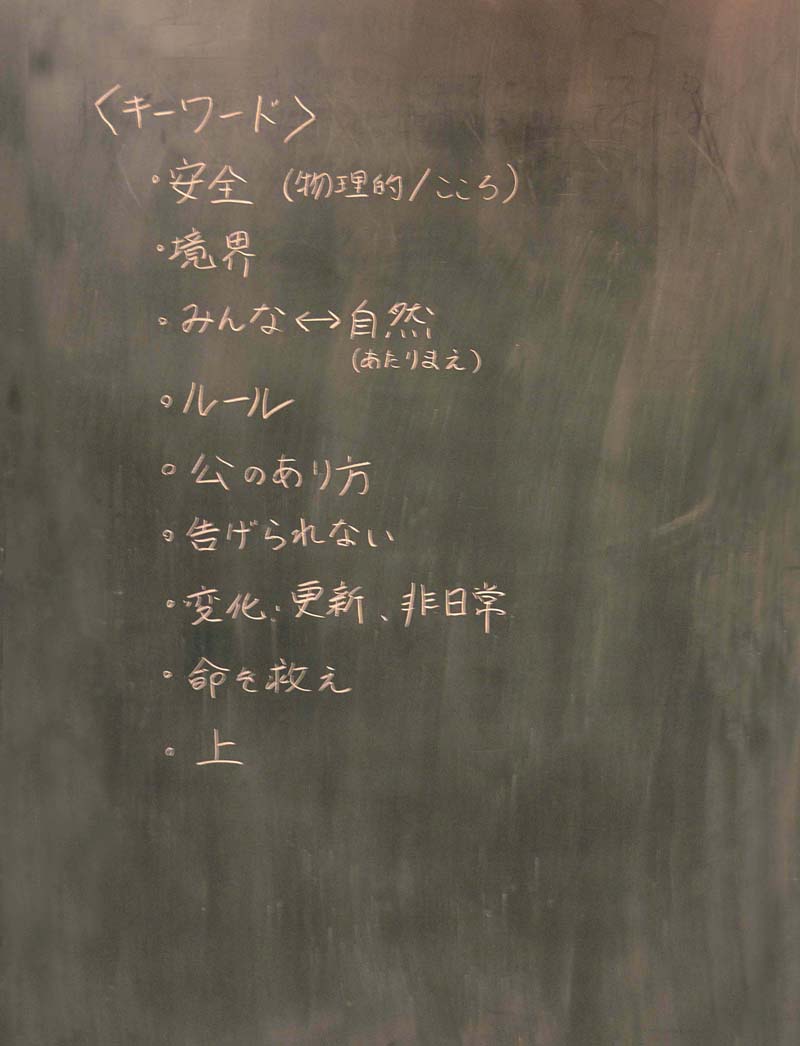 〈キーワード〉
・安全 (物理的/こころ)
・境界
・みんな↔自然
(あたりまえ)
・ルール
・公のあり方
・告げられない
・変化・更新、非日常
・命を救え
・上